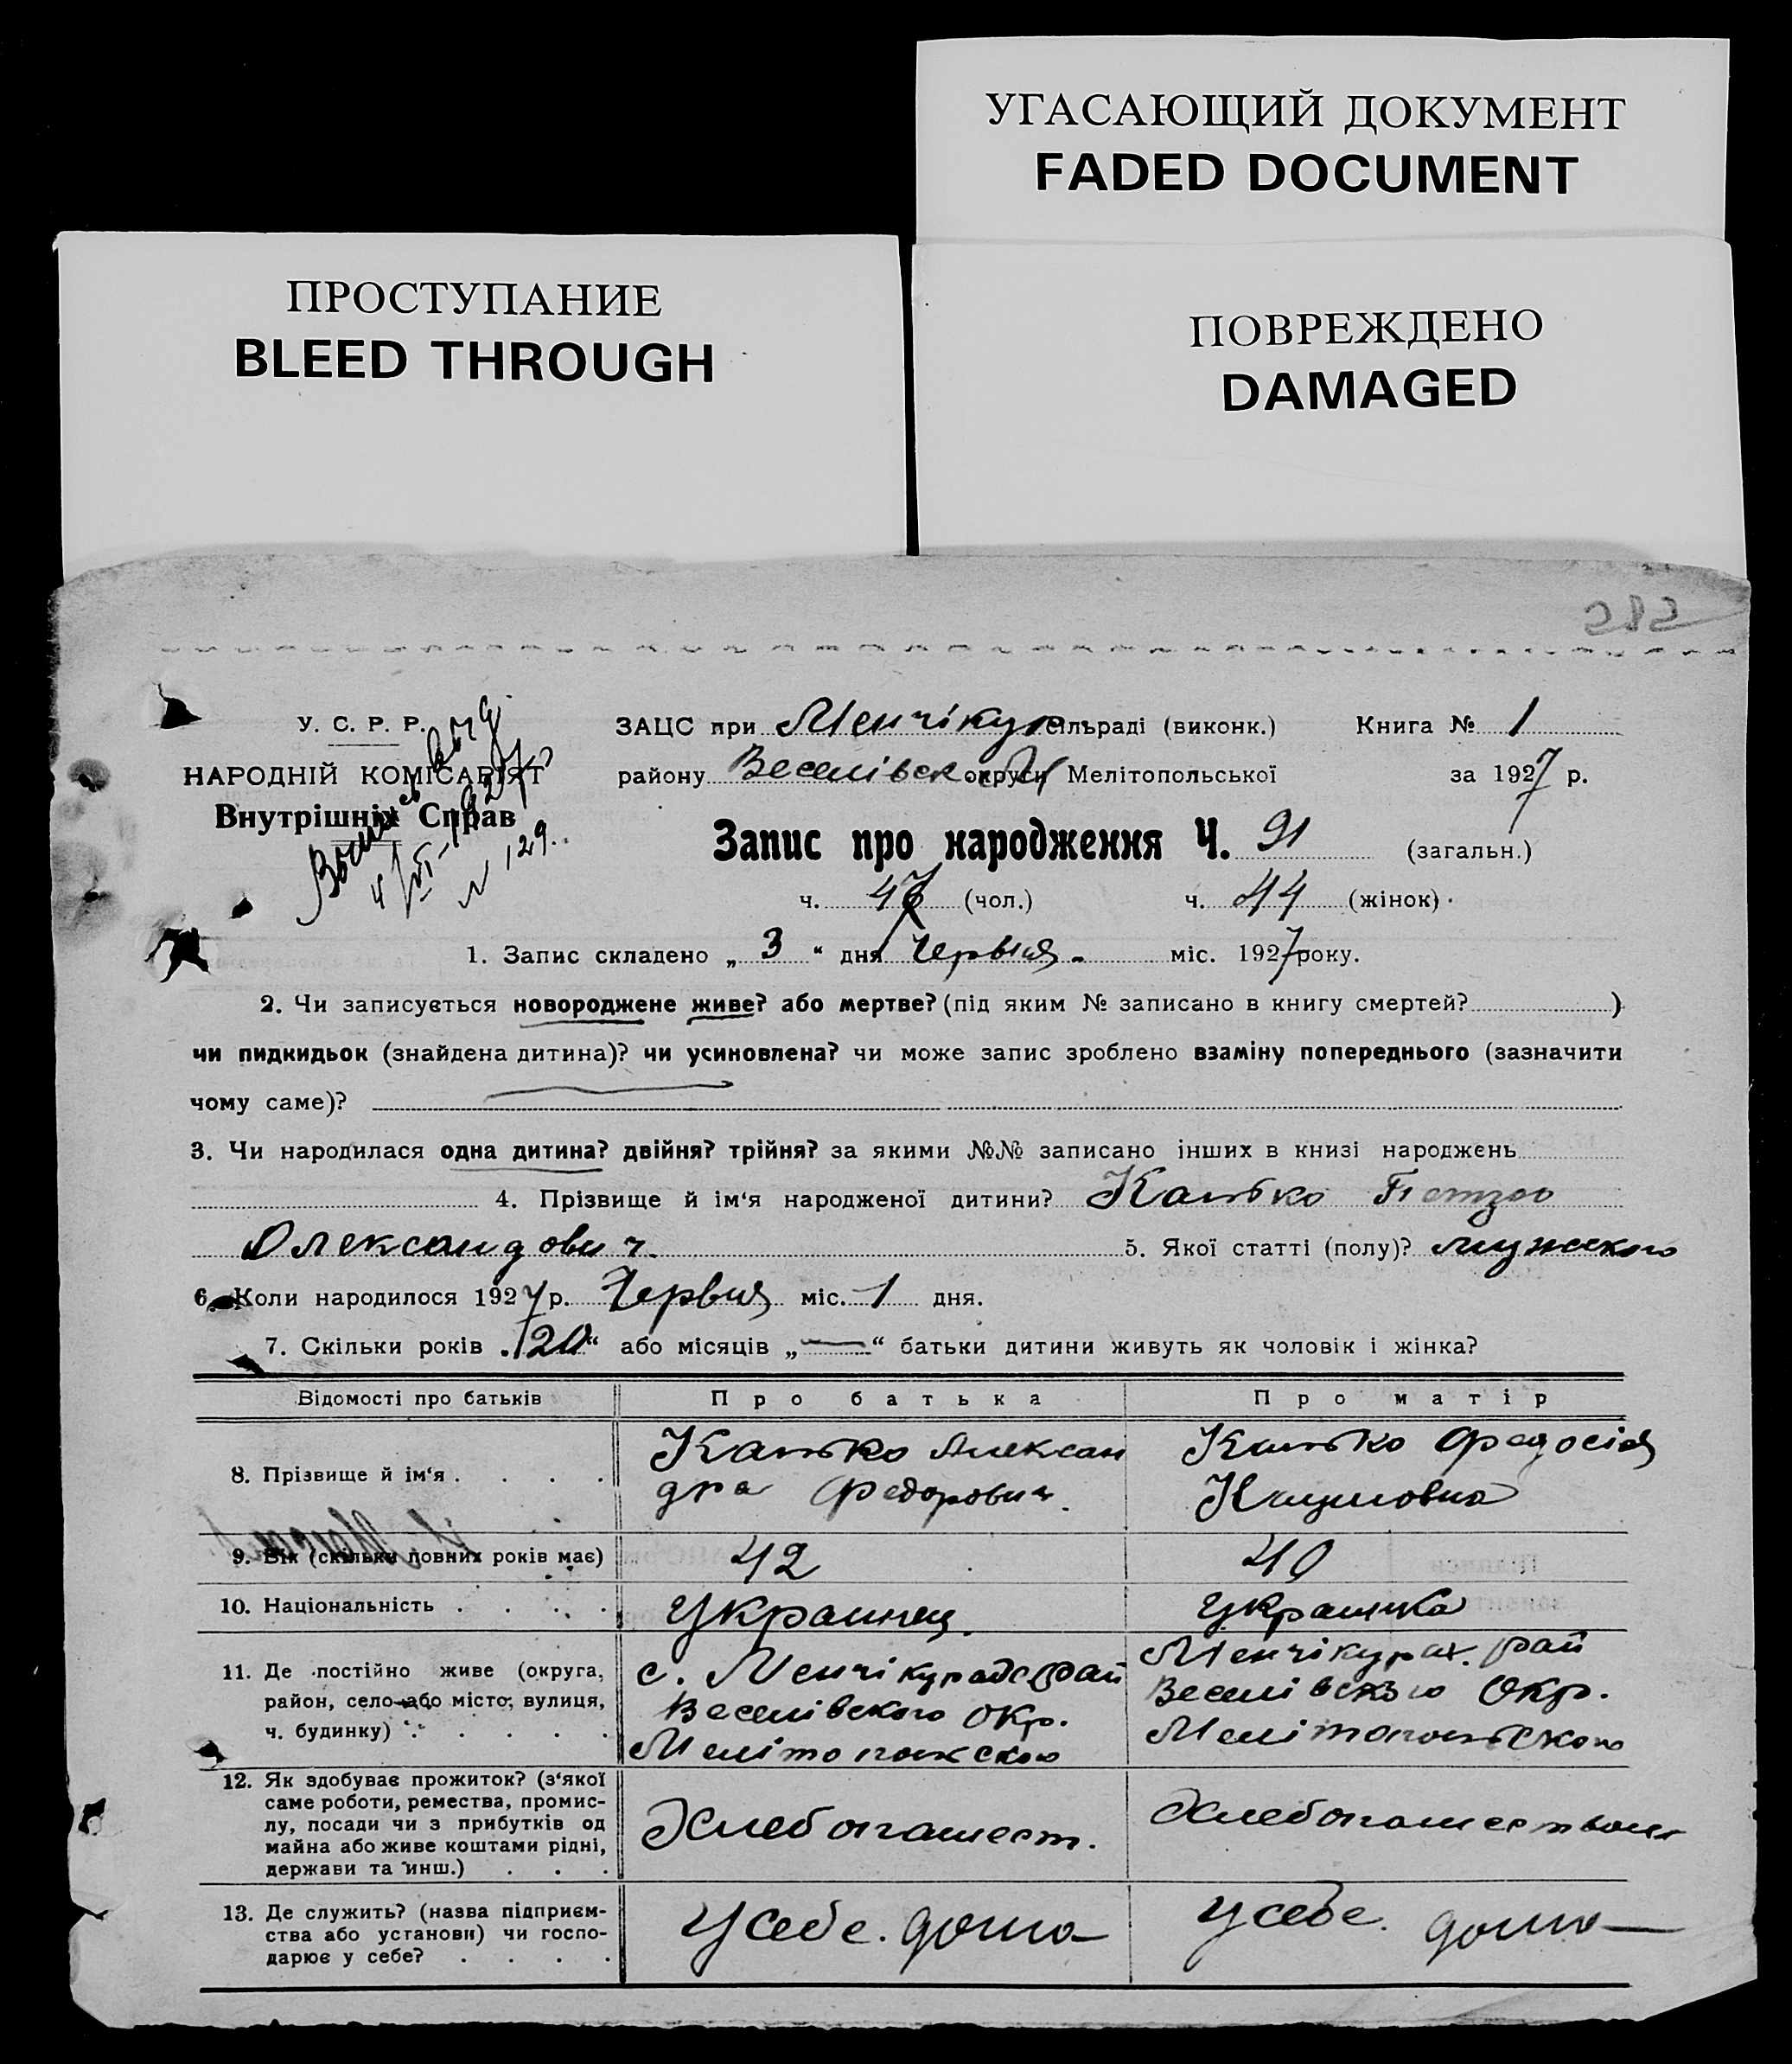 УГАСАЮЩИЙ ДОКУМЕНТ
FADED DOCUMENT
ПРОСТУПАНИЕ
BLEED THROUGH
ПОВРЕЖДЕНО
DAMAGED
У. С. Р. Р.
НАРОДНІЙ КОМІСАРІЯТ
Внутрішніх Справ
№ 129.
ЗАЦС при Менчікур сільраді (виконк.) Книга № 1
району Веселівск округи Мелітопольської за 1927 р.
Запис про народження Ч. 91 (загальн.)
ч. 47 (чол.) ч. 44 (жінок)
1. Запис складено „ 3 “ дня Червня міс. 1927 року.
2. Чи записується новороджене живе? або мертве? (під яким № записано в книгу смертей? )
чи пидкидьок (знайдена дитина)? чи усиновлена? чи може запис зроблено взаміну попереднього (зазначити
чому саме)?
3. Чи народилася одна дитина? двійня? трійня? за якими №№ записано інших в книзі народжень
4. Прізвище й ім‘я народженої дитини? Канько
Олександович. 5. Якої статті (полу)? мужского
6. Коли народилося 1927 р. Червня міс. 1 дня.
7. Скільки років „ 20 “ або місяців „ — “ батьки дитини живуть як чоловік і жінка?
Відомості про батьків Про батька Про матір
8. Прізвище й ім‘я . . . . Канько Алексан Канько Федосія
дра Федорович.
9. Вік (скільки повних років має) 42 40
10. Національність . . . . Украинец. Украинка
11. Де постійно живе (округа, с. Менчікурадс рай Менчікурах. рай
район, село або місто, вулиця, Веселівского окр. Веселівского Окр.
ч. будинку) . . . . . Мелітопольского
12. Як здобуває прожиток? (з‘якої
саме роботи, ремества, промис-
лу, посади чи з прибутків од Хлебопашест. Хлебопашеством
майна або живе коштами рідні,
держави та инш.) . . .
13. Де служить? (назва підприєм-
ства або установи) чи госпо- У себе. дома У себе. дома
дарює у себе? . . . .